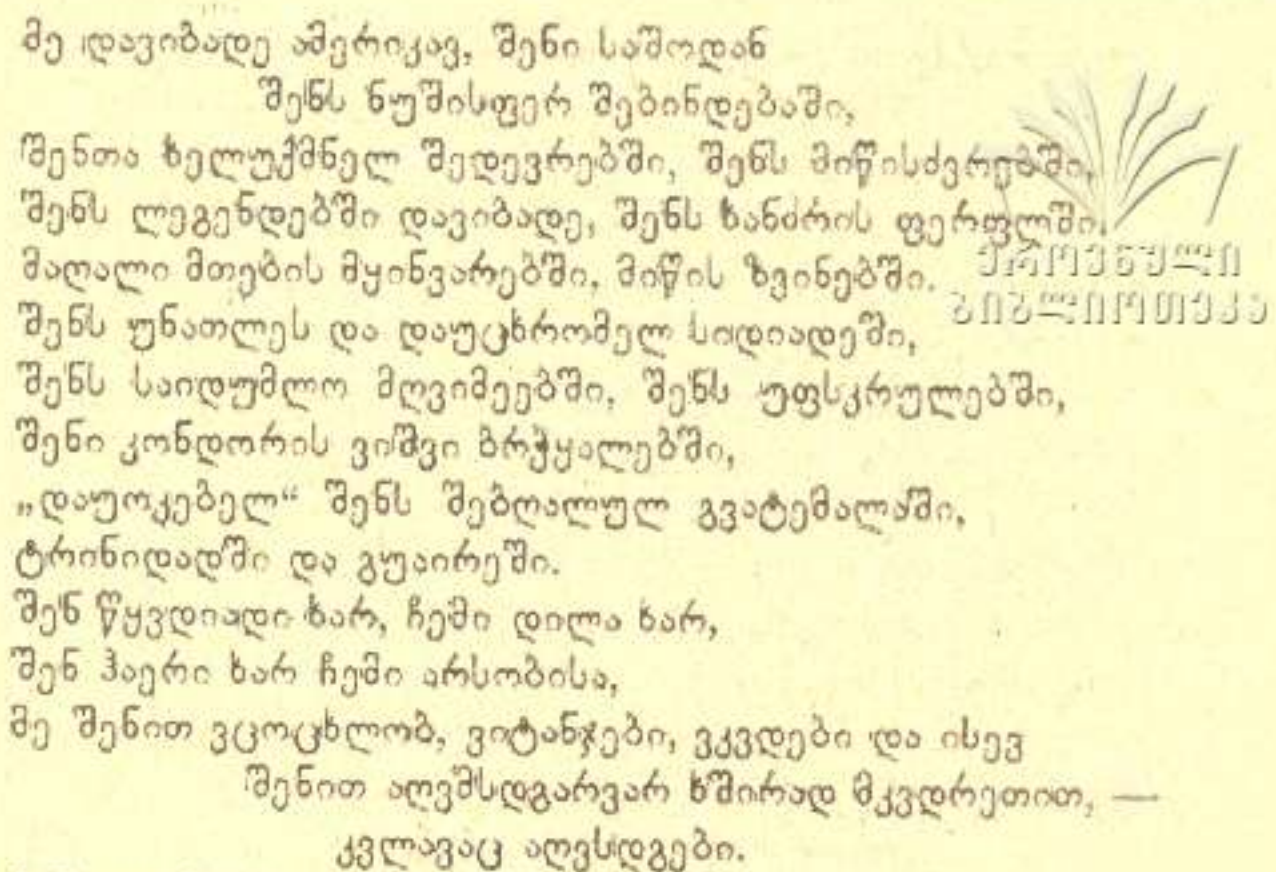 მე დავიბადე ამერიკავ, შენი საშოდან
შენს ნუშისფერ შებინდებაში,
შენთა ხელუქმნელ შედევრებში, შენს მიწისძვრებში,
შენს ლეგენდებში დავიბადე, შენს ხანძრის ფერფლში,
მაღალი მთების მყინვარებში, მიწის ზვინებში.
შენს უნათლეს და დაუცხრომელ სიდიადეში,
შენს საიდუმლო მღვიმეებში, შენს უფსკრულებში,
შენი კონდორის ვიშვი ბრჭყალებში,
„დაუოკებელ“ შენს შებღალულ გვატემალაში,
ტრინიდადში და გუაირეში.
შენ წყვდიადი ხარ, ჩემი დილა ხარ,
შენ ჰაერი ხარ ჩემი არსობისა,
მე შენით ვცოცხლობ, ვიტანჯები, ვკვდები და ისევ
შენით აღვმსდგარვარ ხშირად მკვდრეთით, —
კვლავაც აღვსდგები.
ეროვნული
ბიბლიოთეკა